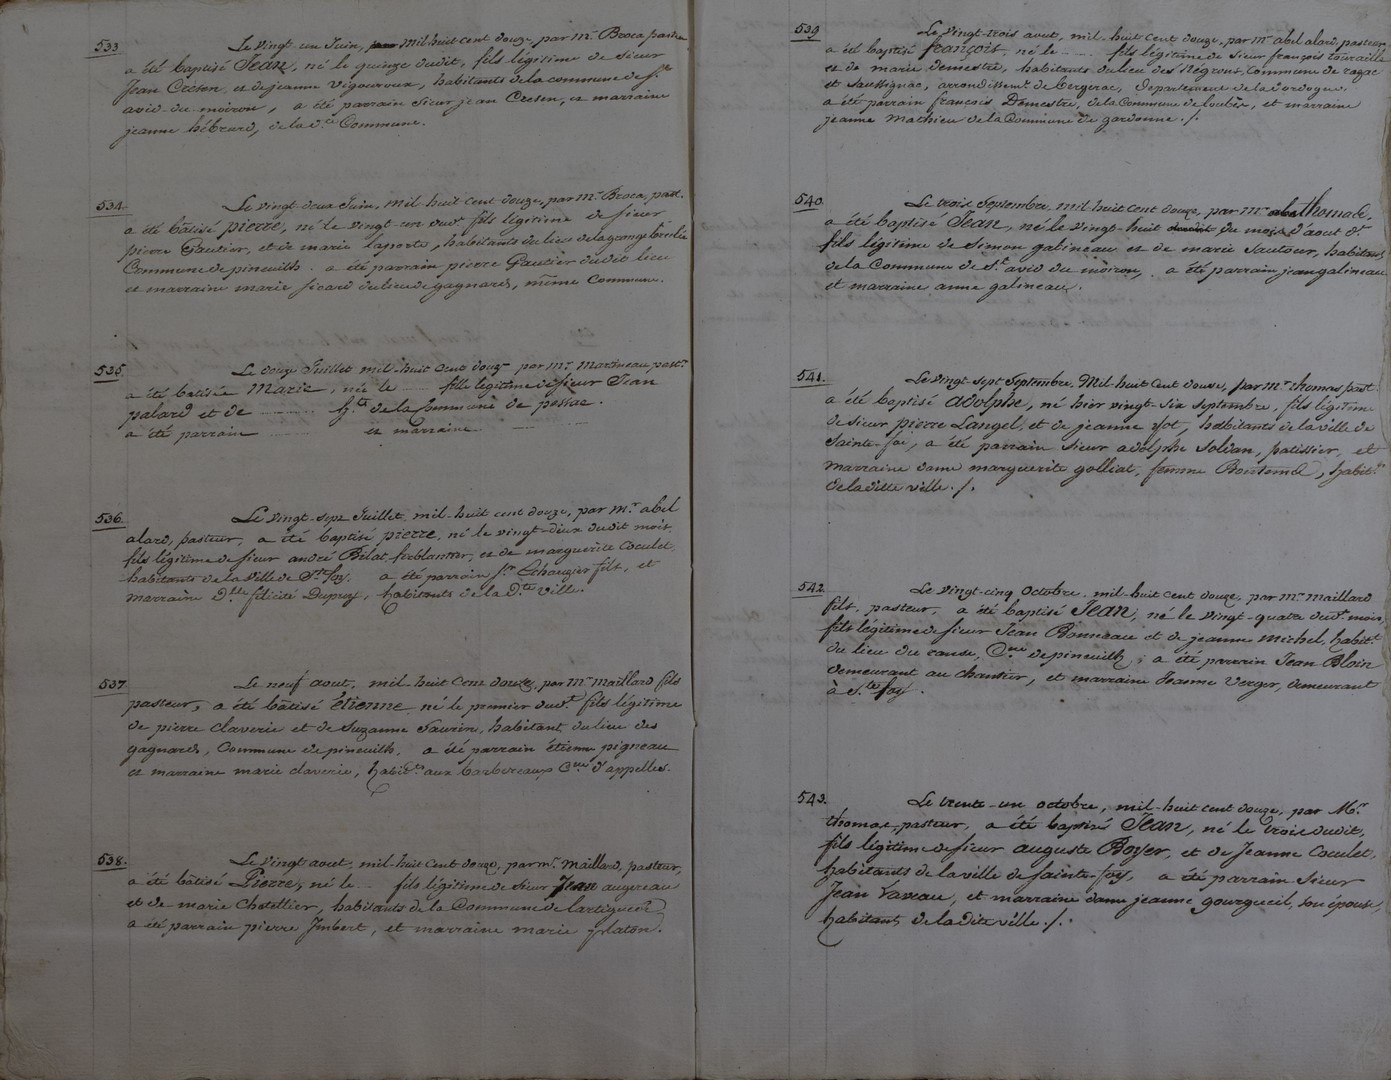 533
Le vingt-un Juin, mil-huit cent douze, par mr. Broca pasteur
a été baptisé Jean, né le quinze dudit, fils légitime de sieur
Jean Creson, et de jeanne Vigouroux, habitants de la commune de St.
avid du moiron, a été parrain sieur jean Creson, et marraine
jeanne hébrard, de la d.te Commune.
534.
Le vingt-deux Juin, mil-huit cent douze, par mr. Broca, past.
a été batisé pierre, né le vingt-un dud.t fils légitime de sieur
pierre Gautier, et de marie laporte, habitants du lieu de la grange
Commune de pineuilh. a été parrain pierre Gautier dudit lieu
et marraine marie sicard du lieu de gagnards, même Commune.
535.
Le douze Juillet mil-huit cent douze par mr. Martineau past.r
a été batisée Marie, née le ---- fille légitime de sieur Jean
palard et de ------ h.ts de la Commune de pessac.
a été parrain ------ et marraine ------
536.
Le vingt-sept Juillet, mil-huit cent douze, par m.r abel
alard, pasteur, a été baptisé pierre, né le vingt-deux dudit mois,
fils légitime de sieur andré Bélat, ferblantier, et de marguerite Coculet,
habitants de la Ville de Ste. foy. a été parrain Sr. Echauzier fils, et
marraine D.lle félicité Dupuy, habitants de la d.te ville.
537.
Le neuf aout, mil-huit cent douze, par mr maillard fils
pasteur, a été bâtisé Étienne, né le premier dud.t fils légitime
de pierre claverie et de Suzanne Saurin, habitant du lieu des
gagnards, Commune de pineuilh, a été parrain étienne pigneau
et marraine marie claverie, habit.ts aux barbereaux C.ne d'appelles.
538.
Le vingt aout, mil-huit cent douze, par mr. maillard, pasteur,
a été bâtisé Pierre, né le -- fils légitime de sieur Jean augereau
et de marie Chatellier, habitants de la Commune de
a été parrain pierre Imbert, et marraine marie graton.
539
Le vingt-trois aout, mil-huit cent douze, par mr abel alard, pasteur,
a été baptisé françois, né le ---- fils légitime de sieur françois touraille
et de marie demestre, habitants du lieu des Négrons, Commune de razac
et Saussignac, arrondissem.t de bergerac, département de la dordogne,
a été parrain françois Demestre, de la Commune de loubès, et marraine
jeanne mathieu de la Commune de gardonne./.
540.
Le trois septembre, mil-huit cent douze, par mr. thomas,
a été baptisé Jean, né le vingt-huit du mois d'aout dr.
fils légitime de simon galineau et de marie sautour, habitans
de la Commune de St. avid du moiron, a été parrain jean galineau
et marraine anne galineau.
541.
Le vingt-sept septembre, Mil-huit cent douze, par mr thomas past.
a été baptisé adolphe, né hier vingt-six septembre, fils légitime
de sieur pierre Langel, et de jeanne Jot, habitants de la ville de
Sainte-foi, a été parrain sieur adolphe soldan, patissier, et
marraine dame marguerite golliat, femme Bontemd, habit.te
de la ditte ville./.
542.
Le vingt-cinq octobre, mil-huit cent douze, par mr maillard
fils, pasteur, a été baptisé Jean, né le vingt-quatre dud.t mois,
fils légitime de sieur Jean Bonneau et de jeanne michel, habit.t
du lieu du C.ne de pineuilh; a été parrain Jean Bloin
demeurant au chantier, et marraine Jeanne Verger, demeurant
à S.te foy.
543.
Le trente-un octobre, mil-huit cent douze, par Mr.
thomas, pasteur, a été baptisé Jean, né le trois dudit,
fils légitime de sieur auguste Boyer, et de Jeanne Coculet,
habitants de la ville de sainte-foy, a été parrain sieur
Jean Vareau, et marraine dame jeanne gourgueil, son épouse,
habitants de la dite ville./.